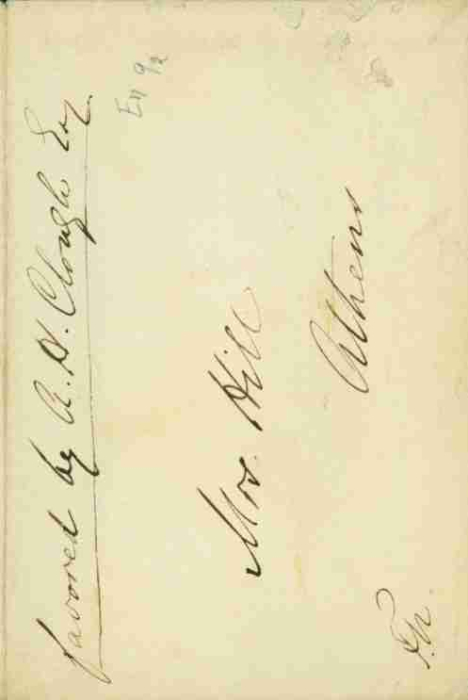 favored by A. H. Clough Esq.
Mrs. Hill
Athens
F.N.